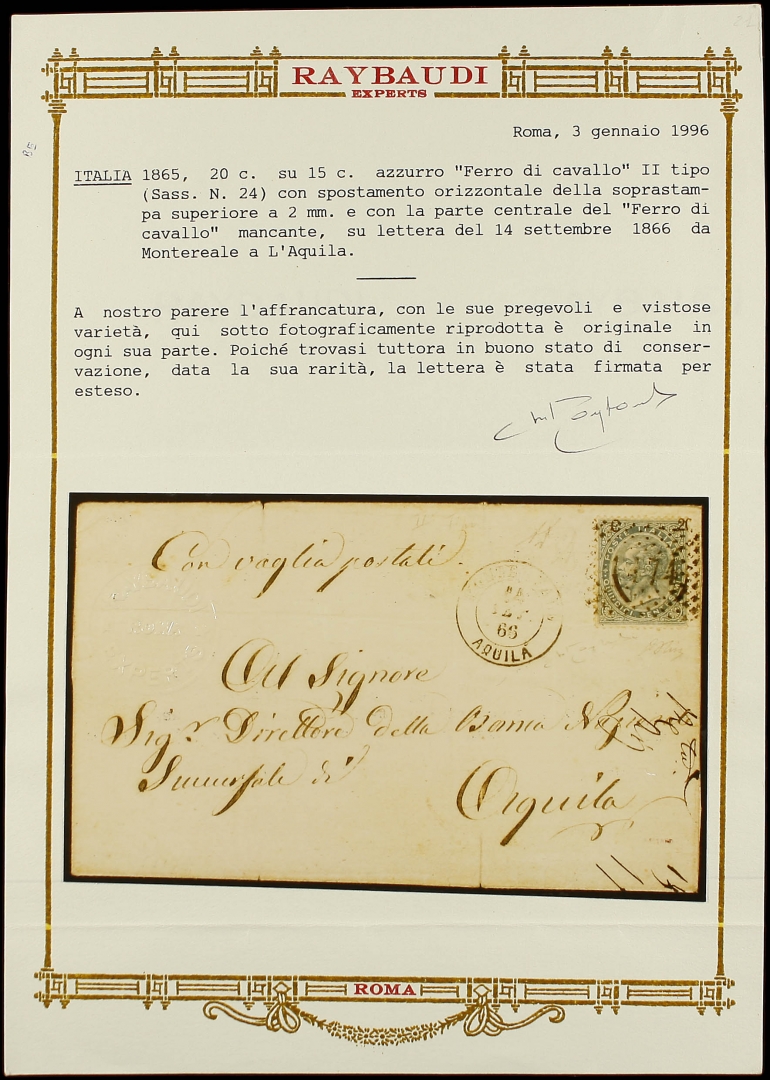 RAYBAUDI
EXPERTS
Roma, 3 gennaio 1996
ITALIA 1865, 20 c. su 15 c. azzurro "Ferro di cavallo" II tipo
(Sass. N. 24) con spostamento orizzontale della soprastam-
pa superiore a 2 mm. e con la parte centrale del "Ferro di
cavallo" mancante, su lettera del 14 settembre 1866 da
Montereale a L'Aquila.
A nostro parere l'affrancatura, con le sue pregevoli e vistose
varietà, qui sotto fotograficamente riprodotta è originale in
ogni sua parte. Poiché trovasi tuttora in buono stato di conser-
vazione, data la sua rarità, la lettera è stata firmata per
esteso.
Con vaglia postali.
C 2
66
AQUILA
Al Signore
Sigr. Direttore della Banca
Succursale di
Aquila
ROMA